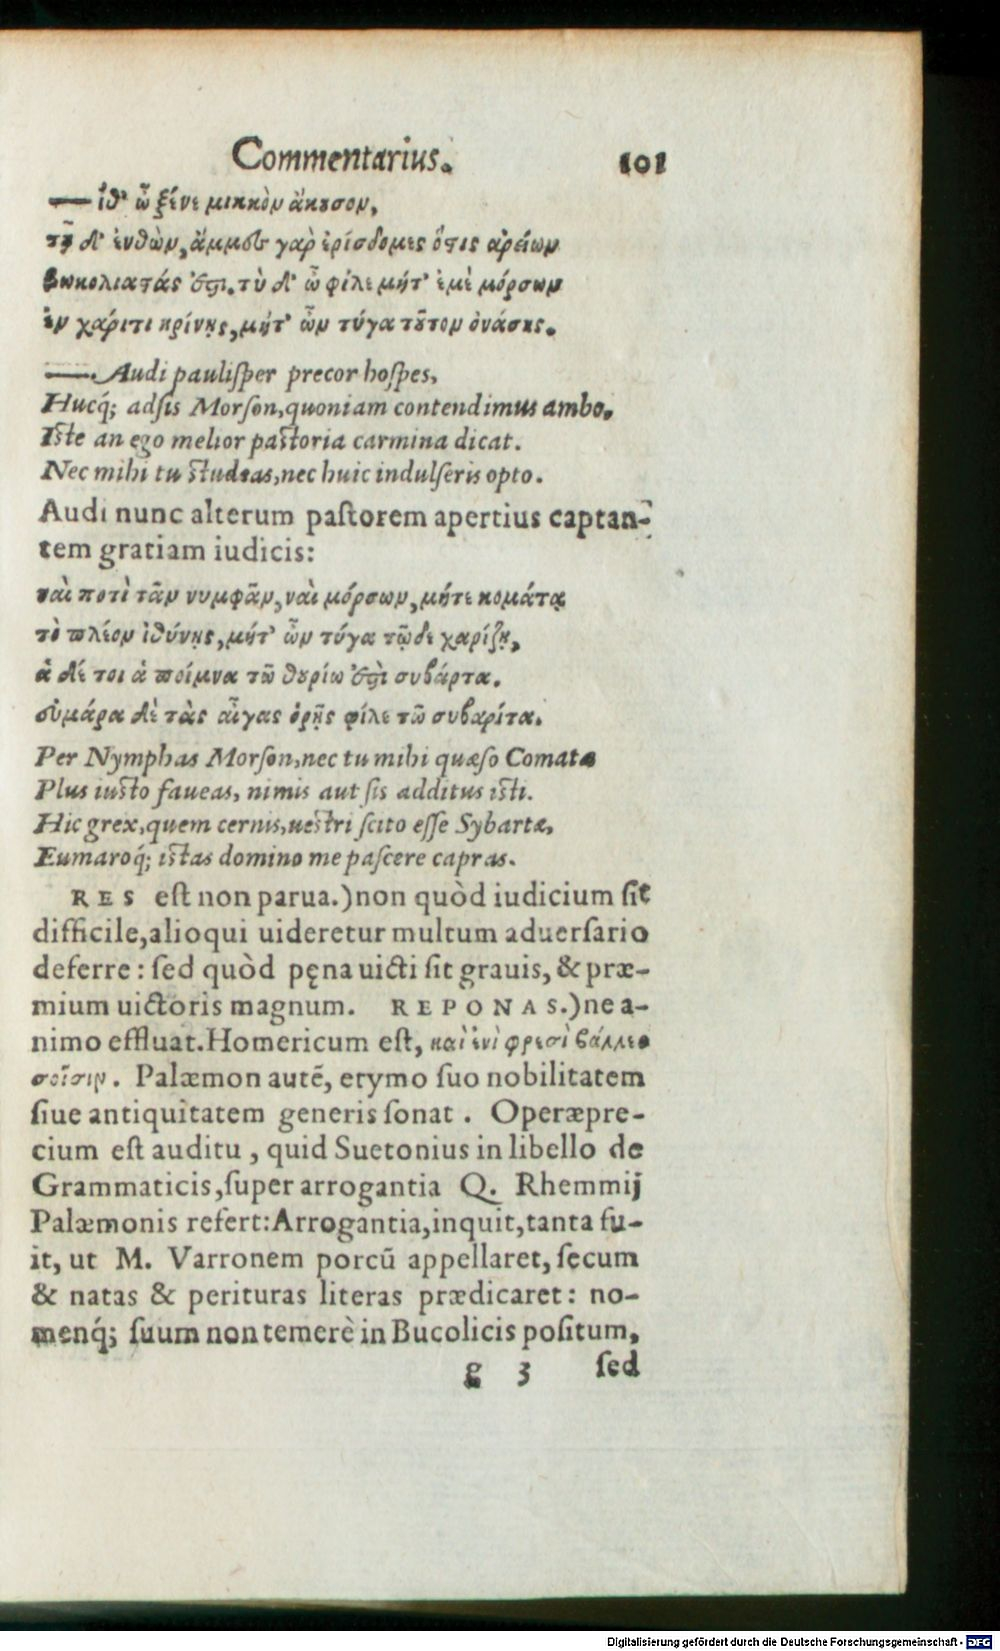 Commentarius. 101
— ἴθ' ὦ ξένε μικκὸν ἄκουσον,
τῇ δ' ἐνθὼν, ἄμμες γὰρ ἐρίσδομες ὅστις ἀρείων
βωκολιαστάς ἐστι. τὺ δ' ὦ φίλε μήτ' ἐμὲ μόρσων
ἐν χάριτι κρίνῃς, μήτ' ὦν τύγα τοῦτον ὀνάσῃς.
—. Audi paulisper precor hospes,
Hucq́; adsis Morson, quoniam contendimus ambo,
Iste an ego melior pastoria carmina dicat.
Nec mihi tu studeas, nec huic indulseris opto.
Audi nunc alterum pastorem apertius captan-
tem gratiam iudicis:
ναὶ ποτὶ τᾶν νυμφᾶν, ναὶ μόρσων, μήτε κομάτᾳ
τὸ πλέον ἰθύνῃς, μήτ' ὦν τύγα τῷδε χαρίξῃ,
ἁ δέ τοι ἁ ποίμνα τῶ θουρίω ἐστὶ συβάρτα.
εὐμάρα δὲ τὰς αἶγας ὁρῇς φίλε τῶ συβαρίτα.
Per Nymphas Morson, nec tu mihi quæso Comatæ
Plus iusto faueas, nimis aut sis additus isti.
Hic grex, quem cernis, uestri scito esse Sybartæ,
Eumaroq́; istas domino me pascere capras.
RES est non parua.) non quòd iudicium sit
difficile, alioqui uideretur multum aduersario
deferre: sed quòd pęna uicti sit grauis, & præ-
mium uictoris magnum. REPONAS.) ne a-
nimo effluat. Homericum est, καὶ ἐνὶ φρεσὶ βάλλεο
σοῖσιν. Palæmon autē, etymo suo nobilitatem
siue antiquitatem generis sonat. Operæpre-
cium est auditu, quid Suetonius in libello de
Grammaticis, super arrogantia Q. Rhemmij
Palæmonis refert: Arrogantia, inquit, tanta fu-
it, ut M. Varronem porcū appellaret, secum
& natas & perituras literas prædicaret: no-
menq́; suum non temerè in Bucolicis positum,
g 3 sed
Digitalisierung gefördert durch die Deutsche Forschungsgemeinschaft - DFG